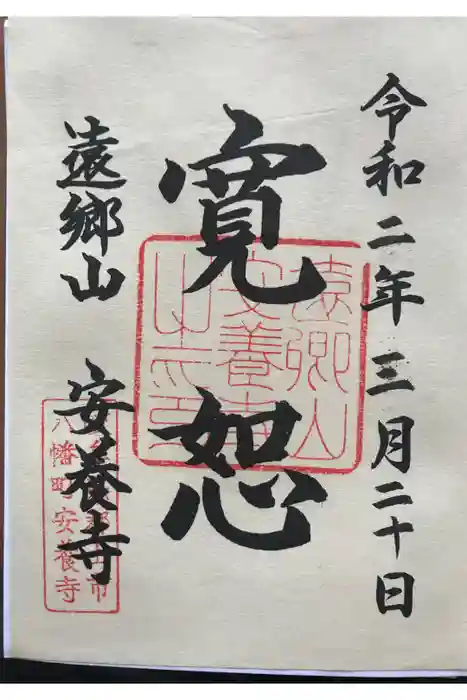 令和二年三月二十日
寛恕
遠郷山 安養寺
遠郷山
安養寺
八幡町安養寺